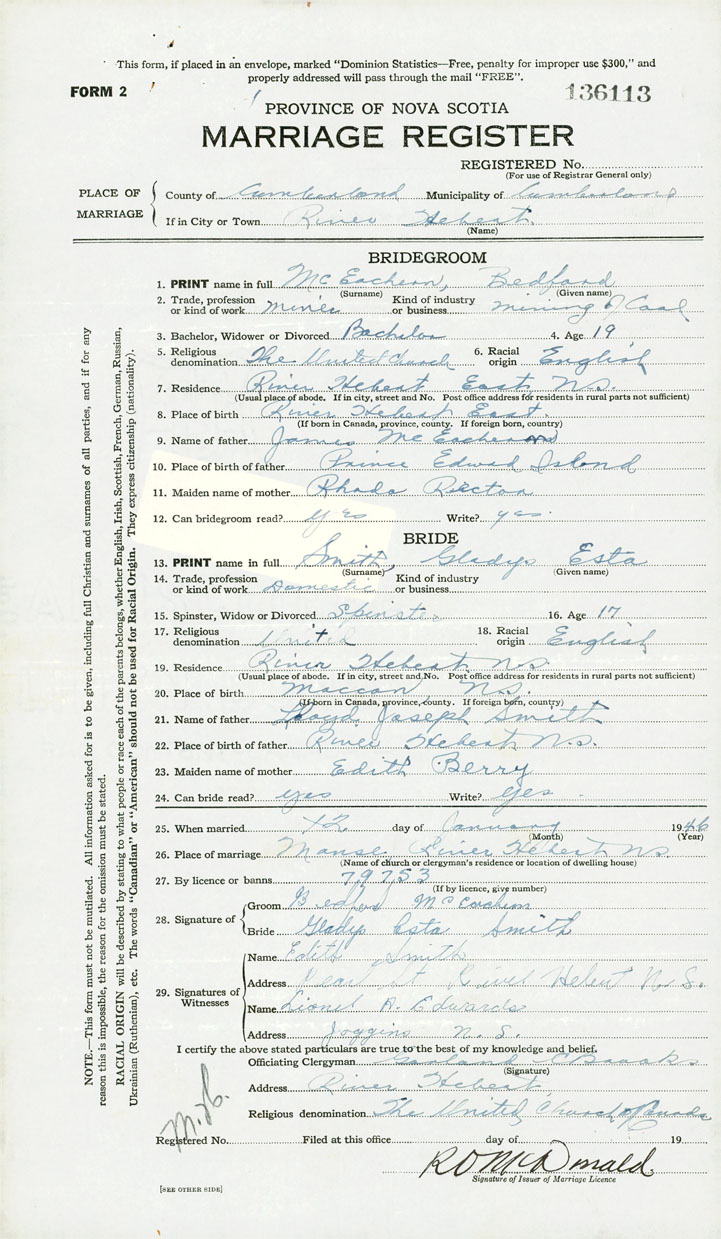 This form, if placed in an envelope, marked "Dominion Statistics—Free, penalty for improper use $300," and
properly addressed will pass through the mail "FREE".
FORM 2
136113
PROVINCE OF NOVA SCOTIA
MARRIAGE REGISTER
REGISTERED No.
(For use of Registrar General only)
PLACE OF MARRIAGE
County of Cumberland Municipality of Cumberland
If in City or Town River Hebert
(Name)
BRIDEGROOM
1. PRINT name in full McEachern, Bedford
(Surname) (Given name)
2. Trade, profession or kind of work miner Kind of industry or business mining of Coal
3. Bachelor, Widower or Divorced Bachelor 4. Age 19
5. Religious denomination The United Church 6. Racial origin English
7. Residence River Hebert East N.S.
(Usual place of abode. If in city, street and No. Post office address for residents in rural parts not sufficient)
8. Place of birth River Hebert East.
(If born in Canada, province, county. If foreign born, country)
9. Name of father James McEachern
10. Place of birth of father Prince Edward Island
11. Maiden name of mother Rhoda Rector
12. Can bridegroom read? yes Write? yes.
BRIDE
13. PRINT name in full Smith, Gladys Esta
(Surname) (Given name)
14. Trade, profession or kind of work Domestic Kind of industry or business
15. Spinster, Widow or Divorced Spinster 16. Age 17
17. Religious denomination United 18. Racial origin English
19. Residence River Hebert N.S.
(Usual place of abode. If in city, street and No. Post office address for residents in rural parts not sufficient)
20. Place of birth Maccan, N.S.
(If born in Canada, province, county. If foreign born, country)
21. Name of father Lloyd Joseph Smith
22. Place of birth of father River Hebert N.S.
23. Maiden name of mother Edith Berry
24. Can bride read? yes Write? yes
25. When married 12 day of January 1946
(Month) (Year)
26. Place of marriage Manse River Hebert N.S.
(Name of church or clergyman's residence or location of dwelling house)
27. By licence or banns 79753
(If by licence, give number)
28. Signature of
Groom Bedford McEachern
Bride Gladys Esta Smith
29. Signatures of Witnesses
Name Edith Smith
Address River Hebert N.S.
Name Lionel A. Edwards
Address Joggins N.S.
I certify the above stated particulars are true to the best of my knowledge and belief.
Officiating Clergyman Garland C Brooks
(Signature)
Address River Hebert
Religious denomination The United Church of Canada
Registered No. Filed at this office day of 19
R D McDonald.
Signature of Issuer of Marriage Licence
[SEE OTHER SIDE]
NOTE.—This form must not be mutilated. All information asked for is to be given, including full Christian and surnames of all parties, and if for any
reason this is impossible, the reason for the omission must be stated.
RACIAL ORIGIN will be described by stating to what people or race each of the parents belongs, whether English, Irish, Scottish, French, German, Russian,
Ukrainian (Ruthenian), etc. The words "Canadian" or "American" should not be used for Racial Origin. They express citizenship (nationality).